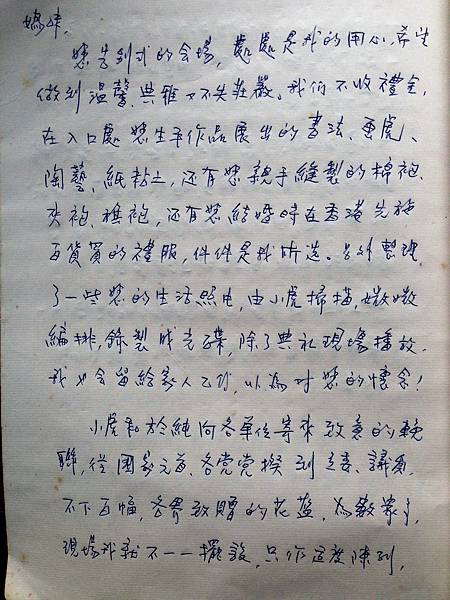 嬌妹,
您告別式的会場,處處是我的用心,希望
做到溫馨、典雅又不失莊嚴。我们不收禮金,
在入口處您生平作品展出的書法、画虎、
陶藝、紙黏土,还有您親手縫製的棉袍、
夾袍、旗袍,还有您結婚時在香港先施
百貨買的禮服,件件是我所选。另外整理
了一些您的生活照片,由小虎掃描,嫩嫩
編排,錄製成光碟,除了典礼現場播放,
我也会留給家人乙份,以為对您的懷念!
小虎和於純向各單位寄來致哀的輓
聯,從國家元首、各党党揆到立委、議員,
不下百幅,各界致贈的花籃,為數眾多,
現場我就不一一擺設,只作適度陳列,